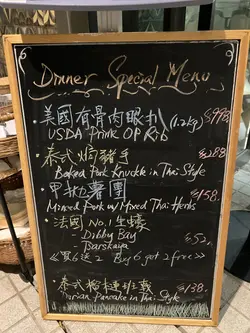 Dinner Special Menu
美國有骨肉眼扒 (1.2kg) $998
USDA Prime OP Rib
泰式焗豬手 $288
Baked Pork Knuckle in Thai Style
甲抛薯團 $158
Minced Pork w/ Mixed Thai Herbs
法國 No.1 生蠔
Dibby Bay
Barskaya $52
《買6送2 Buy 6 get 2 free》
泰式榴槤班戟 $138
Durian Pancake in Thai Style